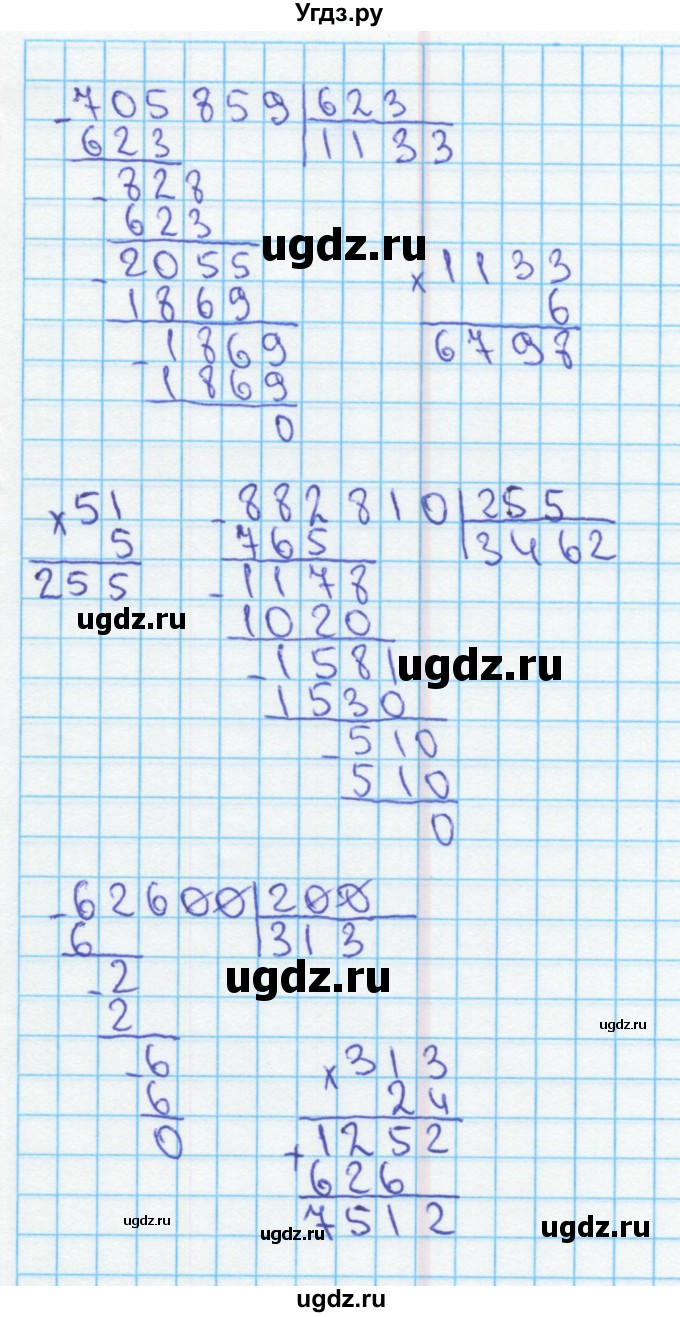 Угдз.ру
- 705 859 | 623
623 | 1133
- 828
623
ugdz.ru
- 2055
1869
- 1869
1869
0
x 1133
6
6798
x 51
5
255
ugdz.ru
- 882 810 | 255
765 | 3462
- 1178
1020
- 1581
ugdz.ru
1530
- 510
510
0
- 62600 | 200
6 | 313
- 2
2
ugdz.ru
- 6
6
0
ugdz.ru
x 313
24
+ 1252
626
7512
ugdz.ru
ugdz.ru
ugdz.ru
ugdz.ru